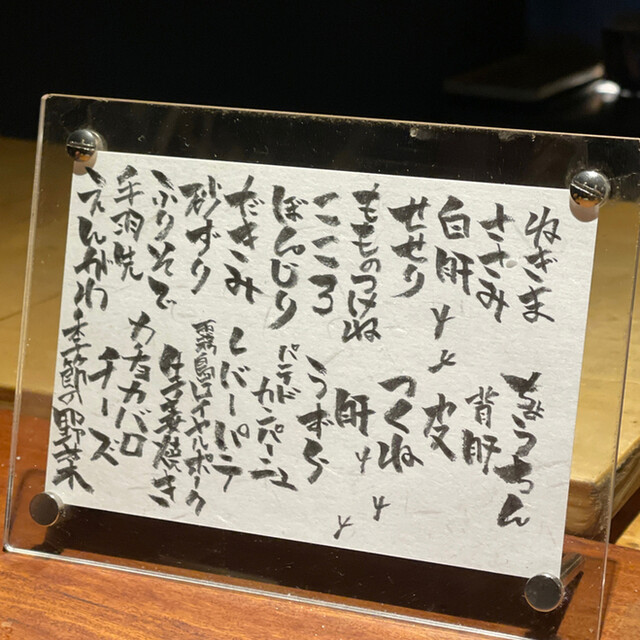 ねぎま ちょうちん
ささみ 背肝
白肝 皮
せせり つくね
もものつけね 肝
こころ うずら
ぼんじり パンデド カンパーニュ
だきみ レバーパテ
砂ずり 霧島ロイヤルポーク
ふりそで 生麦焼き
手羽先 カチョカバロ チーズ
えんがわ 季節の野菜